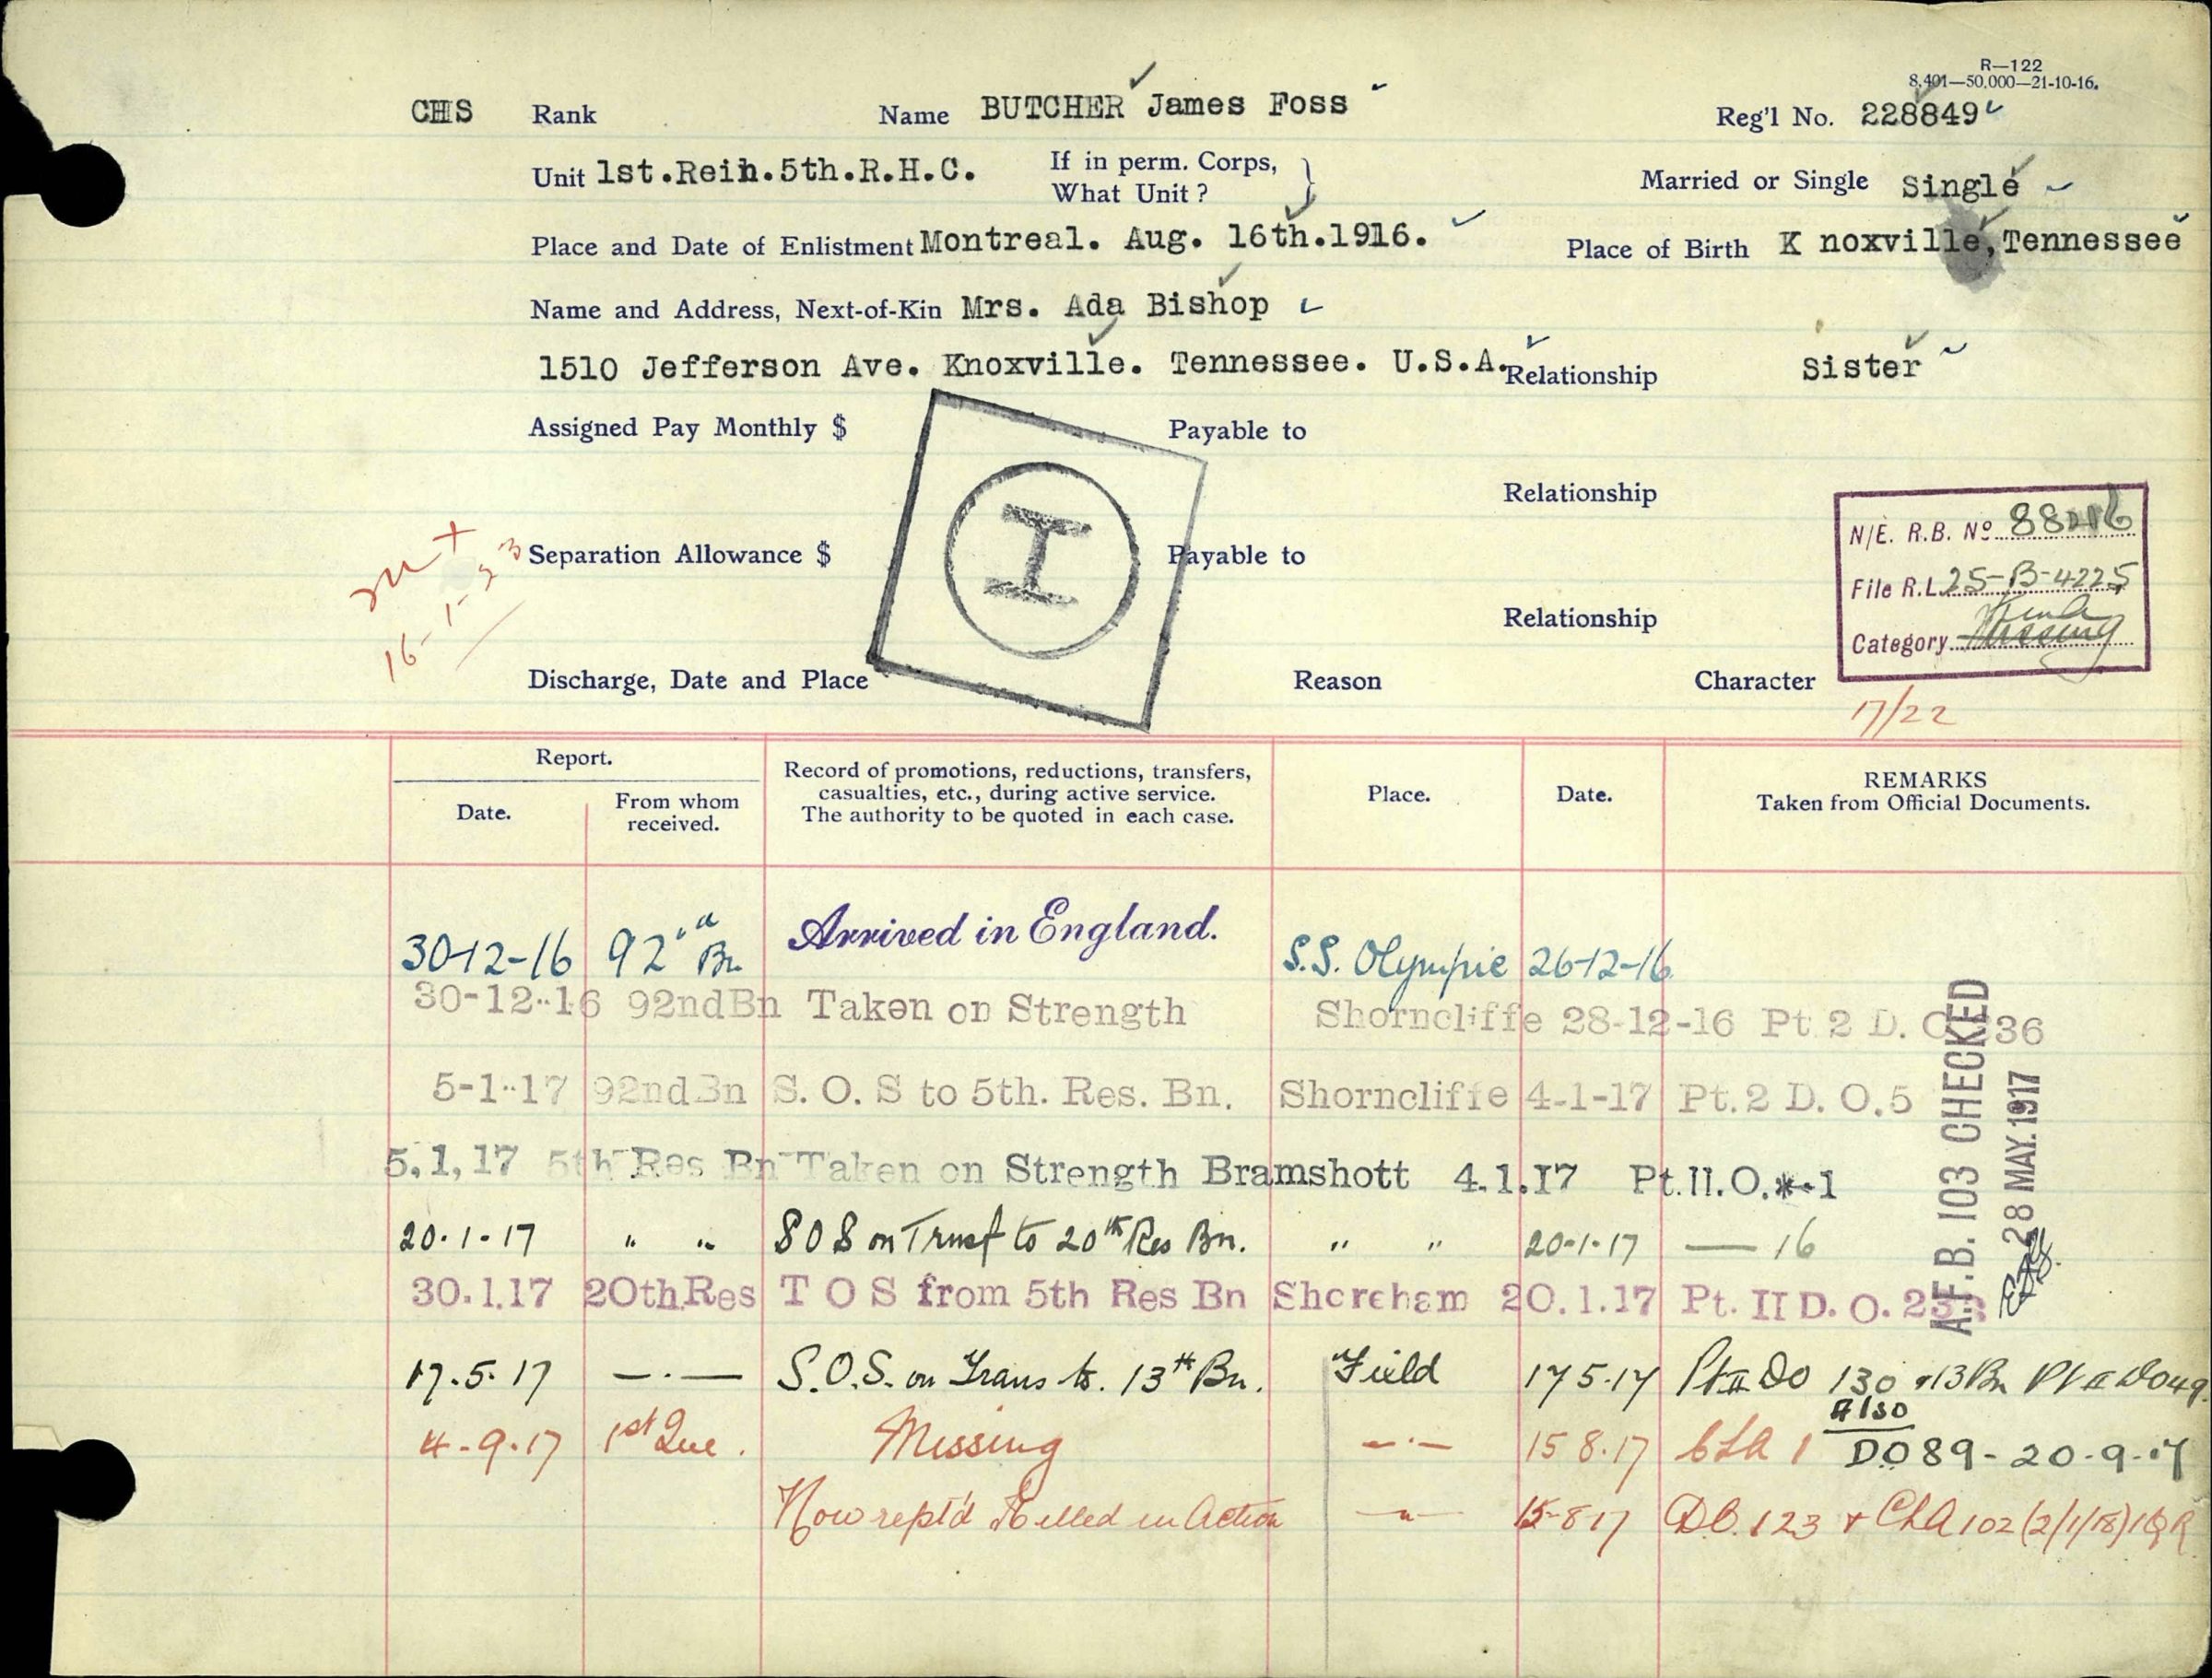 R—122
8,401—50,000—21-10-16.
CHS Rank Name BUTCHER James Foss Reg'l No. 228849
Unit 1st.Rein.5th.R.H.C. If in perm. Corps, What Unit? Married or Single Single
Place and Date of Enlistment Montreal. Aug. 16th.1916. Place of Birth K noxville,Tennessee
Name and Address, Next-of-Kin Mrs. Ada Bishop
1510 Jefferson Ave. Knoxville. Tennessee. U.S.A. Relationship Sister
Assigned Pay Monthly $ Payable to
I
Relationship
N/E. R.B. No
File R.L. 25-B-4225
Category Missing
Separation Allowance $ Payable to
16-1-23
Relationship
Discharge, Date and Place Reason Character
17/22
Report.
Date. From whom received. Record of promotions, reductions, transfers, casualties, etc., during active service. The authority to be quoted in each case. Place. Date. REMARKS Taken from Official Documents.
30-12-16 92nd Bn. Arrived in England. S.S. Olympic 26-12-16
30-12-16 92ndBn Taken on Strength Shorncliffe 28-12-16 Pt 2 D. O 36
5-1-17 92ndBn S. O. S to 5th. Res. Bn. Shorncliffe 4-1-17 Pt.2 D. O.5
5,1,17 5th Res Bn Taken on Strength Bramshott 4.1.17 Pt.II.O.*-1
20-1-17 " " SOS on Transf to 20th Res Bn. " " 20-1-17 — 16
30.1.17 20th.Res T O S from 5th Res Bn Shoreham 20.1.17 Pt. II D. O. 25
A.F.B. 103 CHECKED
28 MAY.1917
17.5.17 —.— S.O.S. on Trans to. 13th Bn. Field 17 5.17 Pt II DO 130 & 13 Bn Pt II DO 49
Also
4-9-17 1st Que. Missing —"— 15 8.17 CLA 1 D.O 89-20-9-17
Now rept'd Killed in Action —"— 15-8 17 DC. 123 & CLA 102 (2/1/18) 1QR